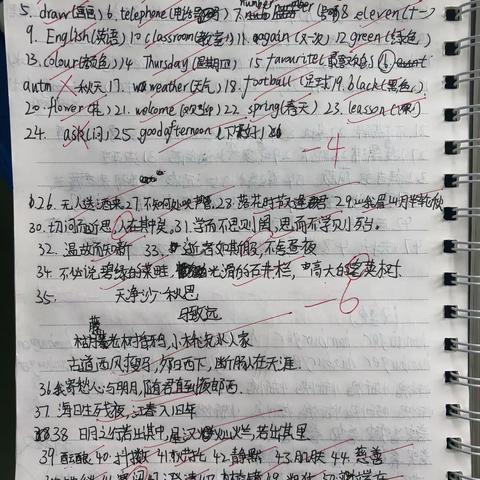 5. draw(画画) 6. telephone(电话号码) 7. number 8. eleven(十一)
9. English(英语) 10 classroom(教室) 11. again(又一次) 12 green(绿色)
13. colour(颜色) 14 Thursday(星期四) 15 favourite(最喜欢的) 16
autn 秋天 17. weather(天气) 18. football(足球) 19. black(黑色)
20. flower(花) 21. welcome(欢迎) 22. spring(春天) 23. leasson(课)
24. ask(问) 25. good afternoon (下午好)
-4
26. 无人送酒来 27. 不知何处吹芦管 28. 落花时节又逢君 29.
30. 切问而近思,仁在其中矣 31. 学而不思则罔,思而不学则殆
32. 温故而知新 33. 逝者如斯夫,不舍昼夜
34. 不必说碧绿的菜畦 光滑的石井栏,高大的皂荚树
-6
35. 天净沙·秋思
马致远
枯藤老树昏鸦,小桥流水人家
古道西风瘦马,夕阳西下,断肠人在天涯.
36 我寄愁心与明月,随君直到夜郎西.
37. 海日生残夜,江春入旧年
38 日月之行若出其中,星汉灿烂,若出其里
39 酝酿 40. 抖擞 41 42 静默 43. 肌肤 44. 慈善